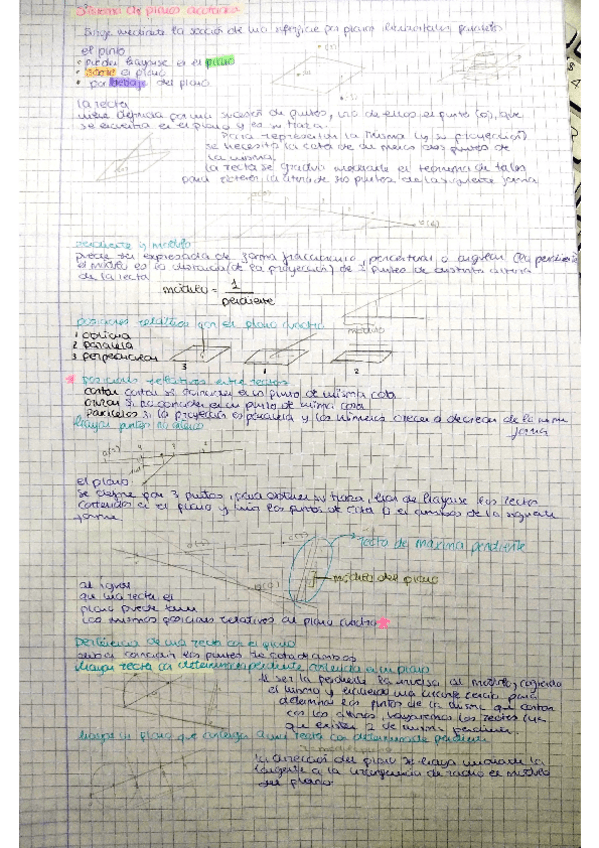 Sistema de planos acotados
Surge mediante la sección de una superficie por planos horizontales paralelos
el punto
• puede hayarse en el plano
• sobre el plano
• por debajo del plano
la recta
viene definida por una sucesión de puntos, uno de ellos el punto (0), que
se encuentra en el plano y es su traza.
Para representar la misma (y su proyección)
se necesita la cota de al menos dos puntos de
la misma.
la recta se gradua mediante el teorema de tales
para obtener la altura de sus puntos de la siguiente forma
pendiente y modulo
puede ser expresada de forma fraccionaria, porcentual o angular
el modulo es la distancia (de la proyección) de 2 puntos de distinta altura
de la recta
modulo = 1 / pendiente
modulo
posiciones relativas con el plano cuadro
1 oblicua
2 paralela
3 perpendicular
3 1 2
* posiciones relativas entre rectas
cortan si coinciden en un punto de misma cota
cruzan si no coinciden en un punto de misma cota
paralelas si la proyección es paralela y los números crecen o decrecen de la misma
forma
el plano
se define por 3 puntos, para obtener su traza, han de hayarse las rectas
contenidas en el plano y unir los puntos de cota 0 en ambas de la siguiente
forma
recta de maxima pendiente
modulo del plano
al igual
que una recta el
plano puede tener
las mismas posiciones relativas al plano cuadro *
Pertenencia de una recta con el plano
deben coincidir los puntos de cota de ambos
Hayar recta con determinada pendiente contenida en un plano
Al ser la pendiente la inversa al modulo, cogiendo
el mismo y haciendo una circunferencia para
determinar los puntos de la misma que cortan
con los otros, hayaremos las rectas
que existen 2 de misma pendiente.
Hayar un plano que contenga a una recta con determinada pendiente
la dirección del plano se haya mediante la
tangente a la circunferencia de radio el modulo
del plano